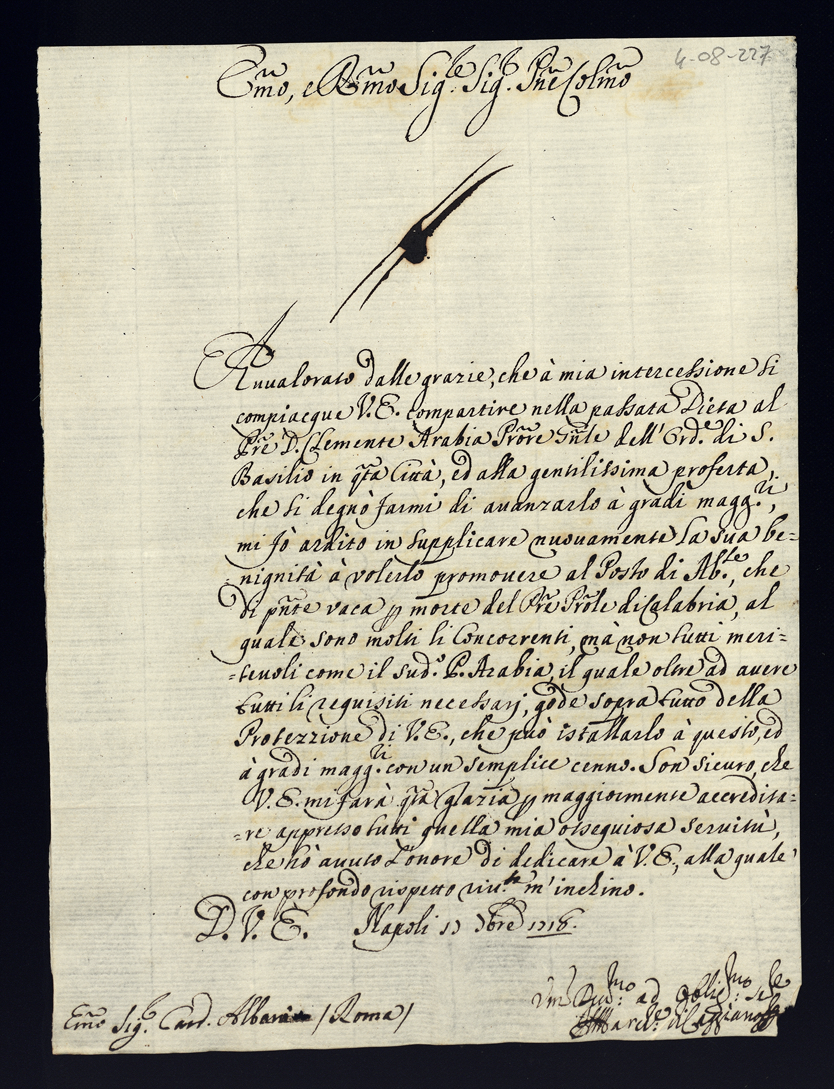 4-08-227
Em̃o, e Rm̃o Sig.re Sig.r Pñe Colm̃o
Auualorato dalle grazie, che à mia intercessione si
compiacque V.E. compartire nella passata Dieta al
Prẽ D. Clemente Arabia Prõre Gñle dell'Ord.e di S.
Basilio in q̃ta Città, ed alla gentilissima proferta,
che si degnò farmi di auanzarlo à gradi magg.ri,
mi fò ardito in supplicare nuouamente la sua be=
nignità à volerlo promouere al Posto di Ab.te, che
di pñte vaca p morte del Prẽ Prõle di Calabria, al
quale sono molti li Concorrenti, mà non tutti meri=
=teuoli come il sud.o P. Arabia, il quale oltre ad auere
tutti li requisiti necessarj, gode sopra tutto della
Protezzione di V.E., che può istallarlo à questo, ed
à gradi magg.ri con un semplice cenno. Son sicuro, che
V.E. mi farà q̃ta grazia p maggiormente accredita=
=re appresso tutti quella mia ossequiosa seruitù,
che hò auuto l'onore di dedicare à V.E., alla quale
con profondo rispetto riu.te m'inchino.
D. V. E. Napoli 1718.
ad oblig.mo
Em̃o Sig.r Card. Albani (Roma)